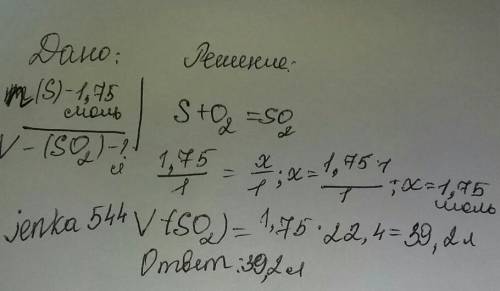 Дано:
m(S)-1,75
моль
V-(SO₂)-?
л
Решение:
S+O₂=SO₂
1,75/1 = x/1; x= 1,75·1/1; x=1,75
моль
jenka 544 V(SO₂)=1,75·22,4=39,2л
Ответ:39,2л